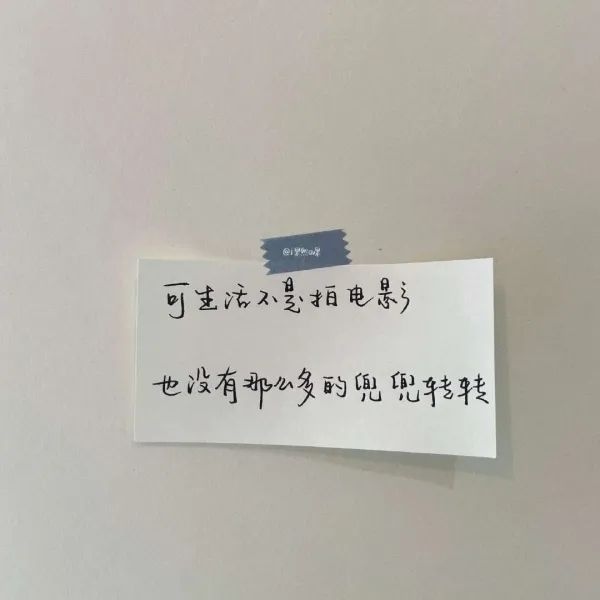 可生活不是拍电影
也没有那么多的兜兜转转